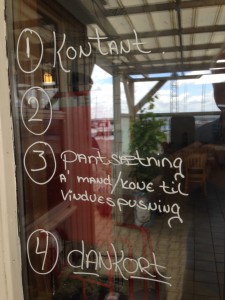 1 KONTANT.
2
3 PANTSÆTNING
Á MAND/KONE TIL
VINDUESPUSNING
4 DANKORT